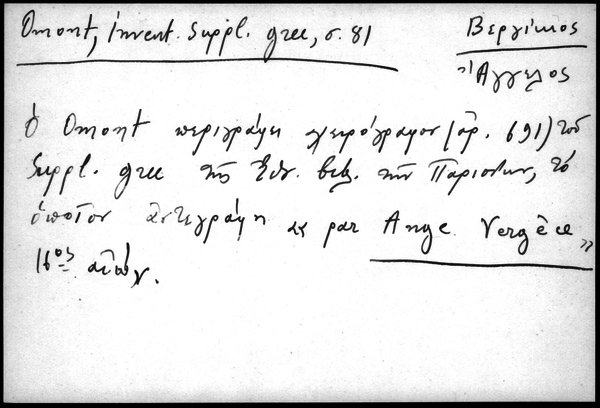 Omont, Invent. Suppl. grec, σ. 81
Βεργίκιος
Ἄγγελος
Ὁ Omont περιγράφει χειρόγραφον (ἀρ. 691) τοῦ
Suppl. grec τῆς Ἐθν. βιβ. τῶν Παρισίων, τὸ
ὁποῖον ἀντεγράφη " par Ange Vergèce "
16ος αἰών.